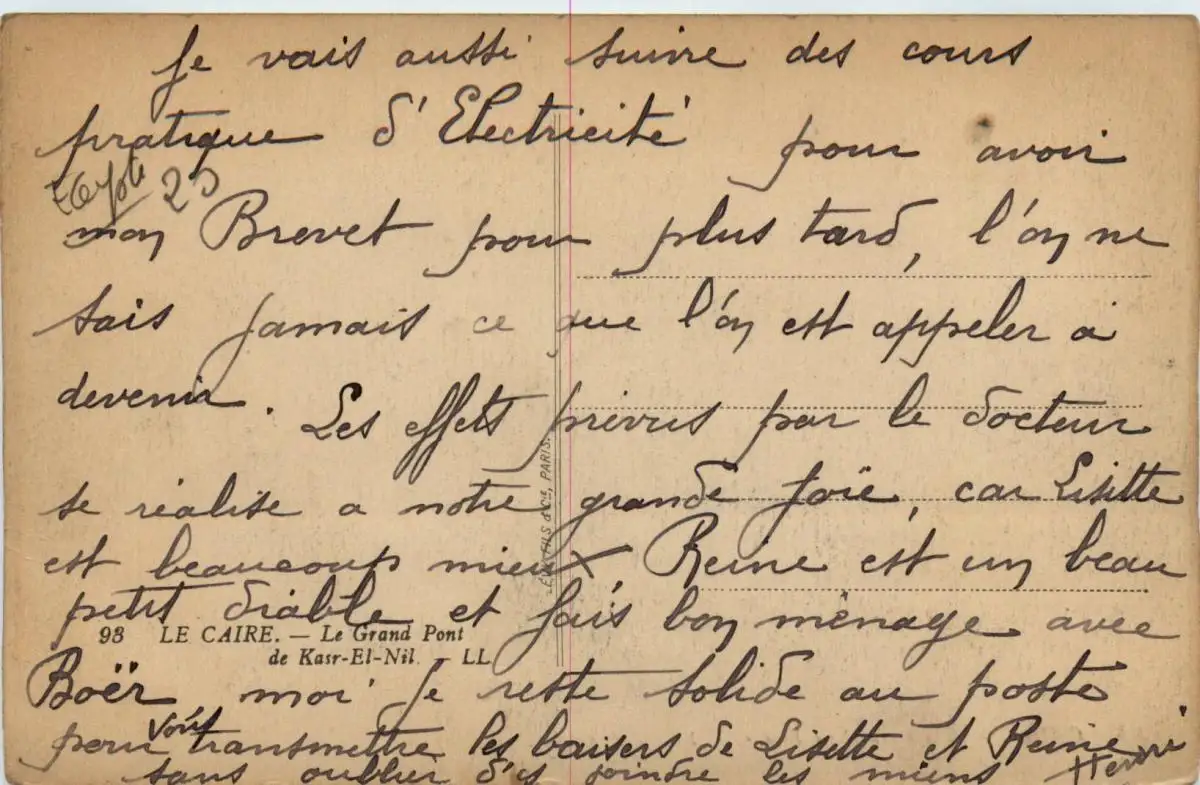 Je vais aussi suivre des cours
pratique d'Electricité pour avoir
Egypte 25
mon Brevet pour plus tard, l'on ne
sais jamais ce que l'on est appeler a
devenir. Les effets prévus par le docteur
se réalise a notre grande joïe, car Lisette
est beaucoup mieux Reine est un beau
petit diable et fais bon ménage avec
98 LE CAIRE. — Le Grand Pont
de Kasr-El-Nil. LL
Boër moi je reste solide au poste
pour vous transmettre les baisers de Lisette et Reine
sans oublier d'y joindre les miens Henri
FILS PARIS.